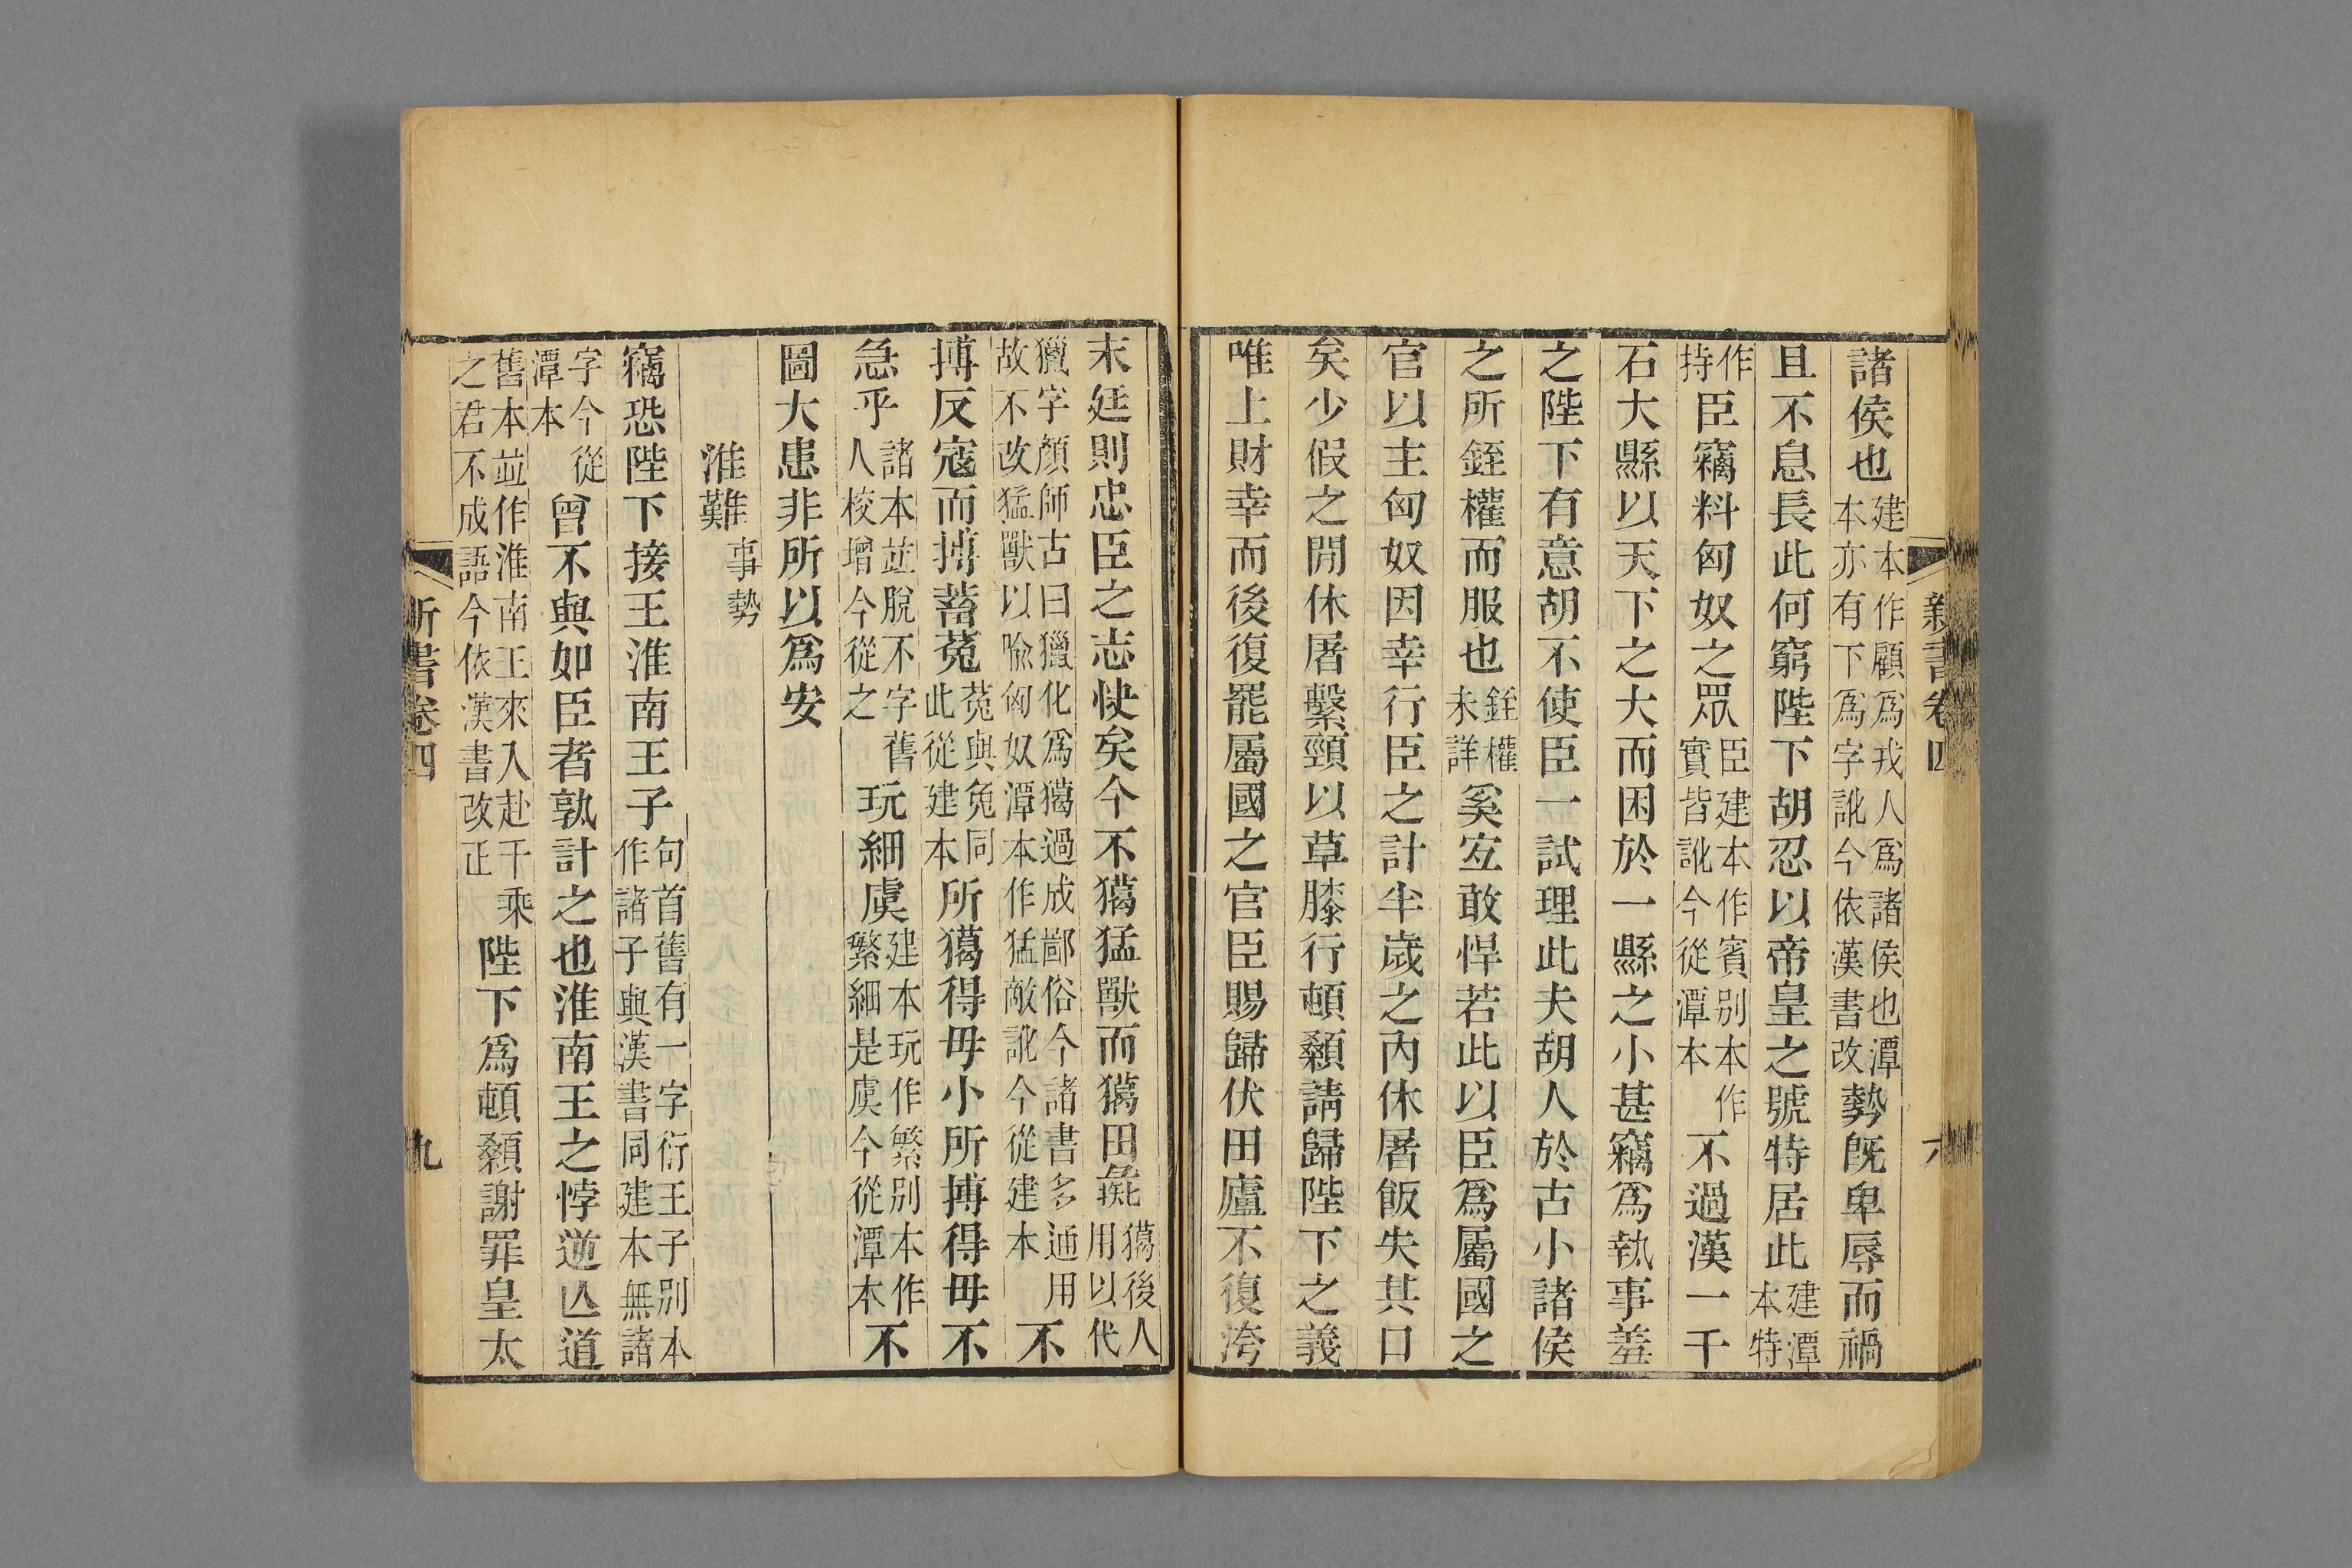 新書卷四
諸侯也建本作顧爲戎人爲諸侯也潭本亦有下爲字訛今依漢書改勢旣卑辱而禍
且不息長此何窮陛下胡忍以帝皇之號特居此建潭本特
作持臣竊料匈奴之眾臣建本作賓別本作實皆訛今從潭本不過漢一千
石大縣以天下之大而困於一縣之小甚竊爲執事羞
之陛下有意胡不使臣一試理此夫胡人於古小諸侯
之所銍權而服也銍權未詳奚宐敢悍若此以臣爲屬國之
官以主匈奴因幸行臣之計半歲之內休屠飯失其口
矣少假之閒休屠繫頸以草膝行頓顙請歸陛下之義
唯上財幸而後復罷屬國之官臣賜歸伏田廬不復洿
末廷則忠臣之志快矣今不獦猛獸而獦田彘獦後人用以代
獵字顏師古曰獵化爲獦過成鄙俗今諸書多通用故不改猛獸以喩匈奴潭本作猛敵訛今從建本不
搏反寇而搏蓄菟菟與兔同此從建本所獦得毋小所搏得毋不
急乎諸本並脫不字舊人校增今從之玩細虞建本玩作繁別本作繁細是虞今從潭本不
圖大患非所以爲安
淮難事勢
竊恐陛下接王淮南王子句首舊有一字衍王子別本作諸子與漢書同建本無諸
字今從潭本曾不與如臣者孰計之也淮南王之悖逆亾道
舊本並作淮南王來入赴千乘之君不成語今依漢書改正陛下爲頓顙謝罪皇太
新書卷四
九